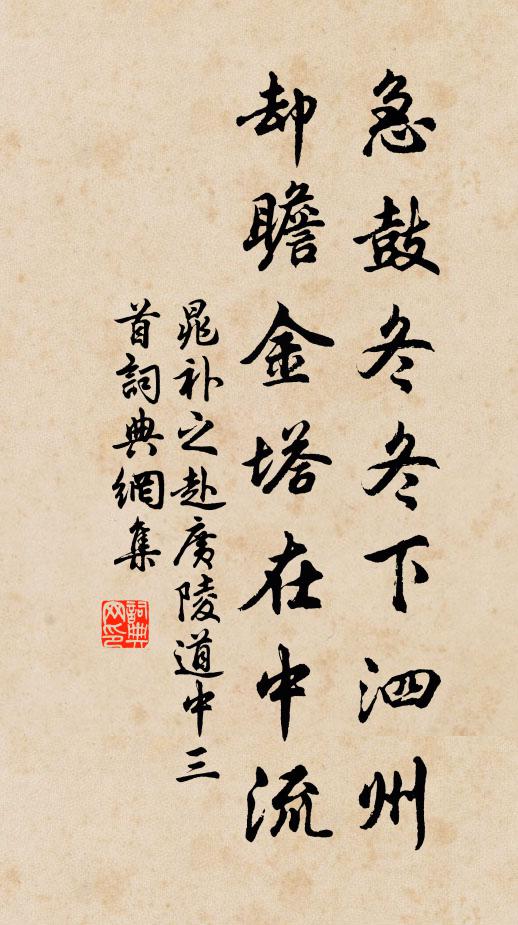 急鼓冬冬下泗州
却瞻金塔在中流
晁补之赴廣陵道中三
首詞典網集
詞典
网印